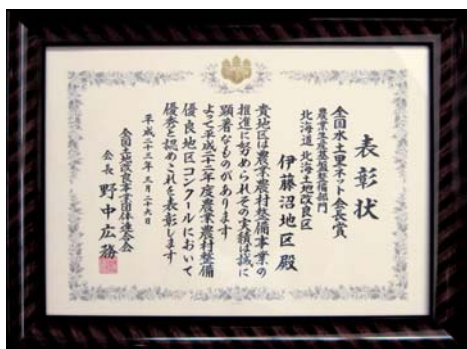 表彰状
全国水土里ネット会長賞
農業生産基盤整備部門
北海道 北海土地改良区
伊藤沼地区殿
貴地区は農業農村整備事業の
推進に努められその実績は誠に
顕著なものがあります
よって平成二十二年度農業農村整備
優良地区コンクールにおいて
優秀と認めこれを表彰します
平成二十三年三月二十六日
全国土地改良事業団体連合会
会長 野中広務